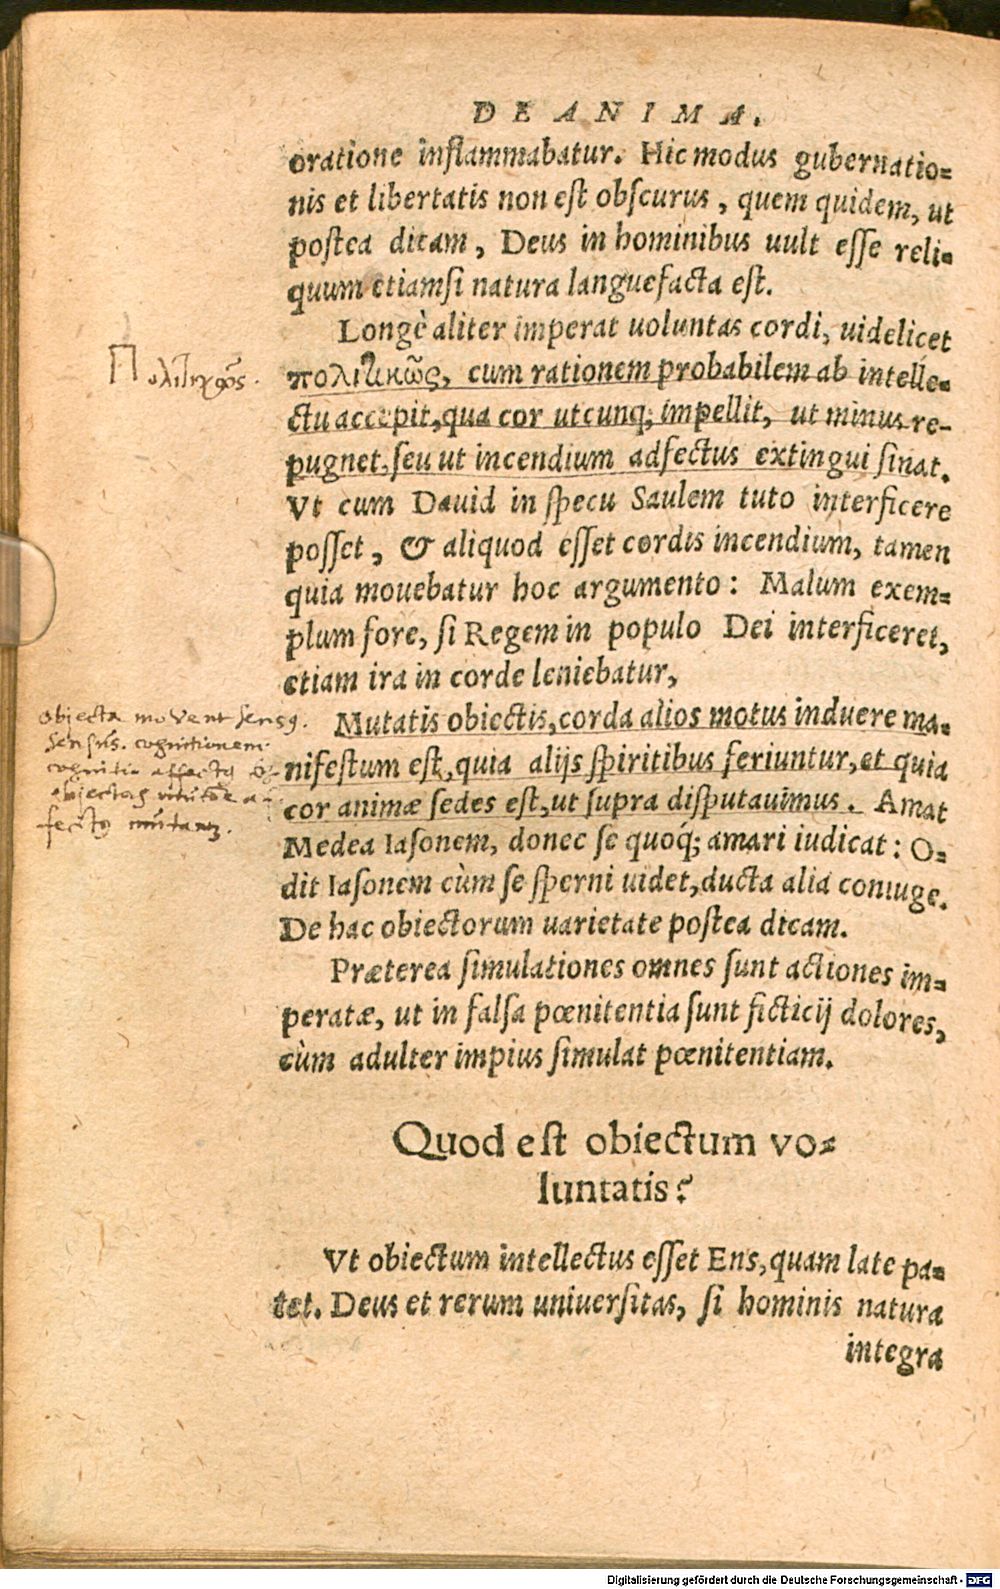 DE ANIMA.
oratione inflammabatur. Hic modus gubernatio-
nis et libertatis non est obscurus, quem quidem, ut
postea dicam, Deus in hominibus uult esse reli-
quum etiamsi natura languefacta est.
Longè aliter imperat uoluntas cordi, uidelicet
πολιτικῶς, cum rationem probabilem ab intelle-
ctu accepit, qua cor utcunq; impellit, ut minus re-
pugnet, seu ut incendium adfectus extingui sinat.
Vt cum Dauid in specu Saulem tuto interficere
posset, & aliquod esset cordis incendium, tamen
quia mouebatur hoc argumento: Malum exem-
plum fore, si Regem in populo Dei interficeret,
etiam ira in corde leniebatur,
objecta movent sensq.
sensus. cognitionem
cognitio affectq
objectaq a
fectq mutanq.
Mutatis obiectis, corda alios motus induere ma-
nifestum est, quia alijs spiritibus feriuntur, et quia
cor animæ sedes est, ut supra disputauimus. Amat
Medea Iasonem, donec se quoq; amari iudicat: O-
dit Iasonem cùm se sperni uidet, ducta alia coniuge.
De hac obiectorum uarietate postea dicam.
Præterea simulationes omnes sunt actiones im-
peratæ, ut in falsa pœnitentia sunt ficticij dolores,
cùm adulter impius simulat pœnitentiam.
Quod est obiectum vo-
luntatis?
Vt obiectum intellectus esset Ens, quam late pa-
tet. Deus et rerum uniuersitas, si hominis natura
integra
Digitalisierung gefördert durch die Deutsche Forschungsgemeinschaft - DFG